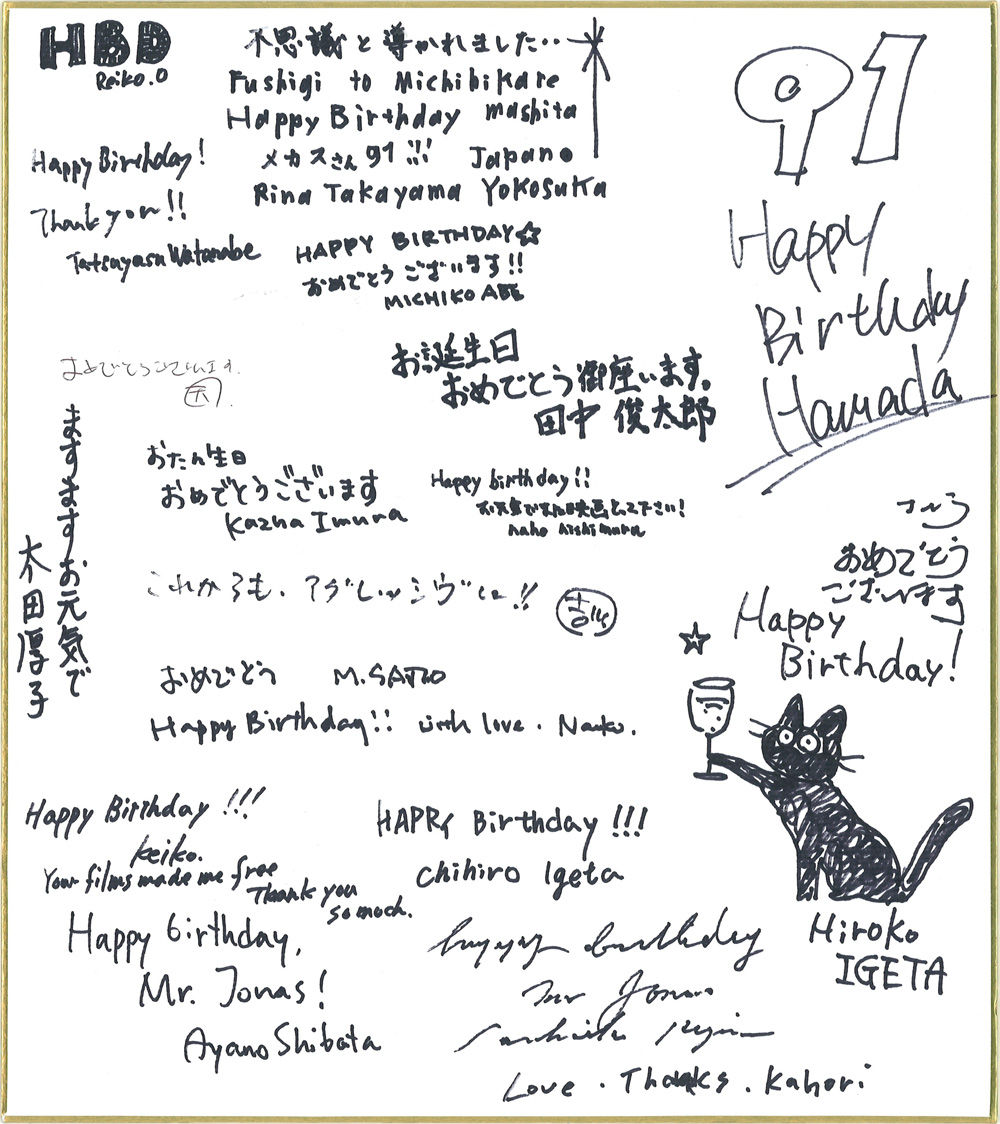 HBD
Reiko.O
不思議と導かれました‥
Fushigi to Michibikare
mashita
Happy Birthday
メカスさん 91 !!!
Japan
Rina Takayama Yokosuka
91
Happy
Birthday
Hamada
Happy Birthday!
Thank you!!
Tatsuyasu Watanabe
HAPPY BIRTHDAY☆
おめでとうございます!!
MICHIKO ABE
お誕生日
おめでとう御座います。
田中 俊太郎
おめでとうございます。
ますますお元気で
木田厚子
おたん生日
おめでとうございます
Kazha Imura
Happy birthday!!
naho nishimura
これからも、アグレッシヴに!!
おめでとう M.SAITO
Happy Birthday!! with love. Naoko.
おめでとう
ございます
Happy
Birthday!
Hiroko
IGETA
Happy Birthday!!!
Keiko.
Your films made me free
Thank you
so much.
HAPPY Birthday!!!
Chihiro Igeta
Happy birthday,
Mr. Jonas!
Ayano Shibata
happy birthday
Jonas
Love. Thanks. Kahori